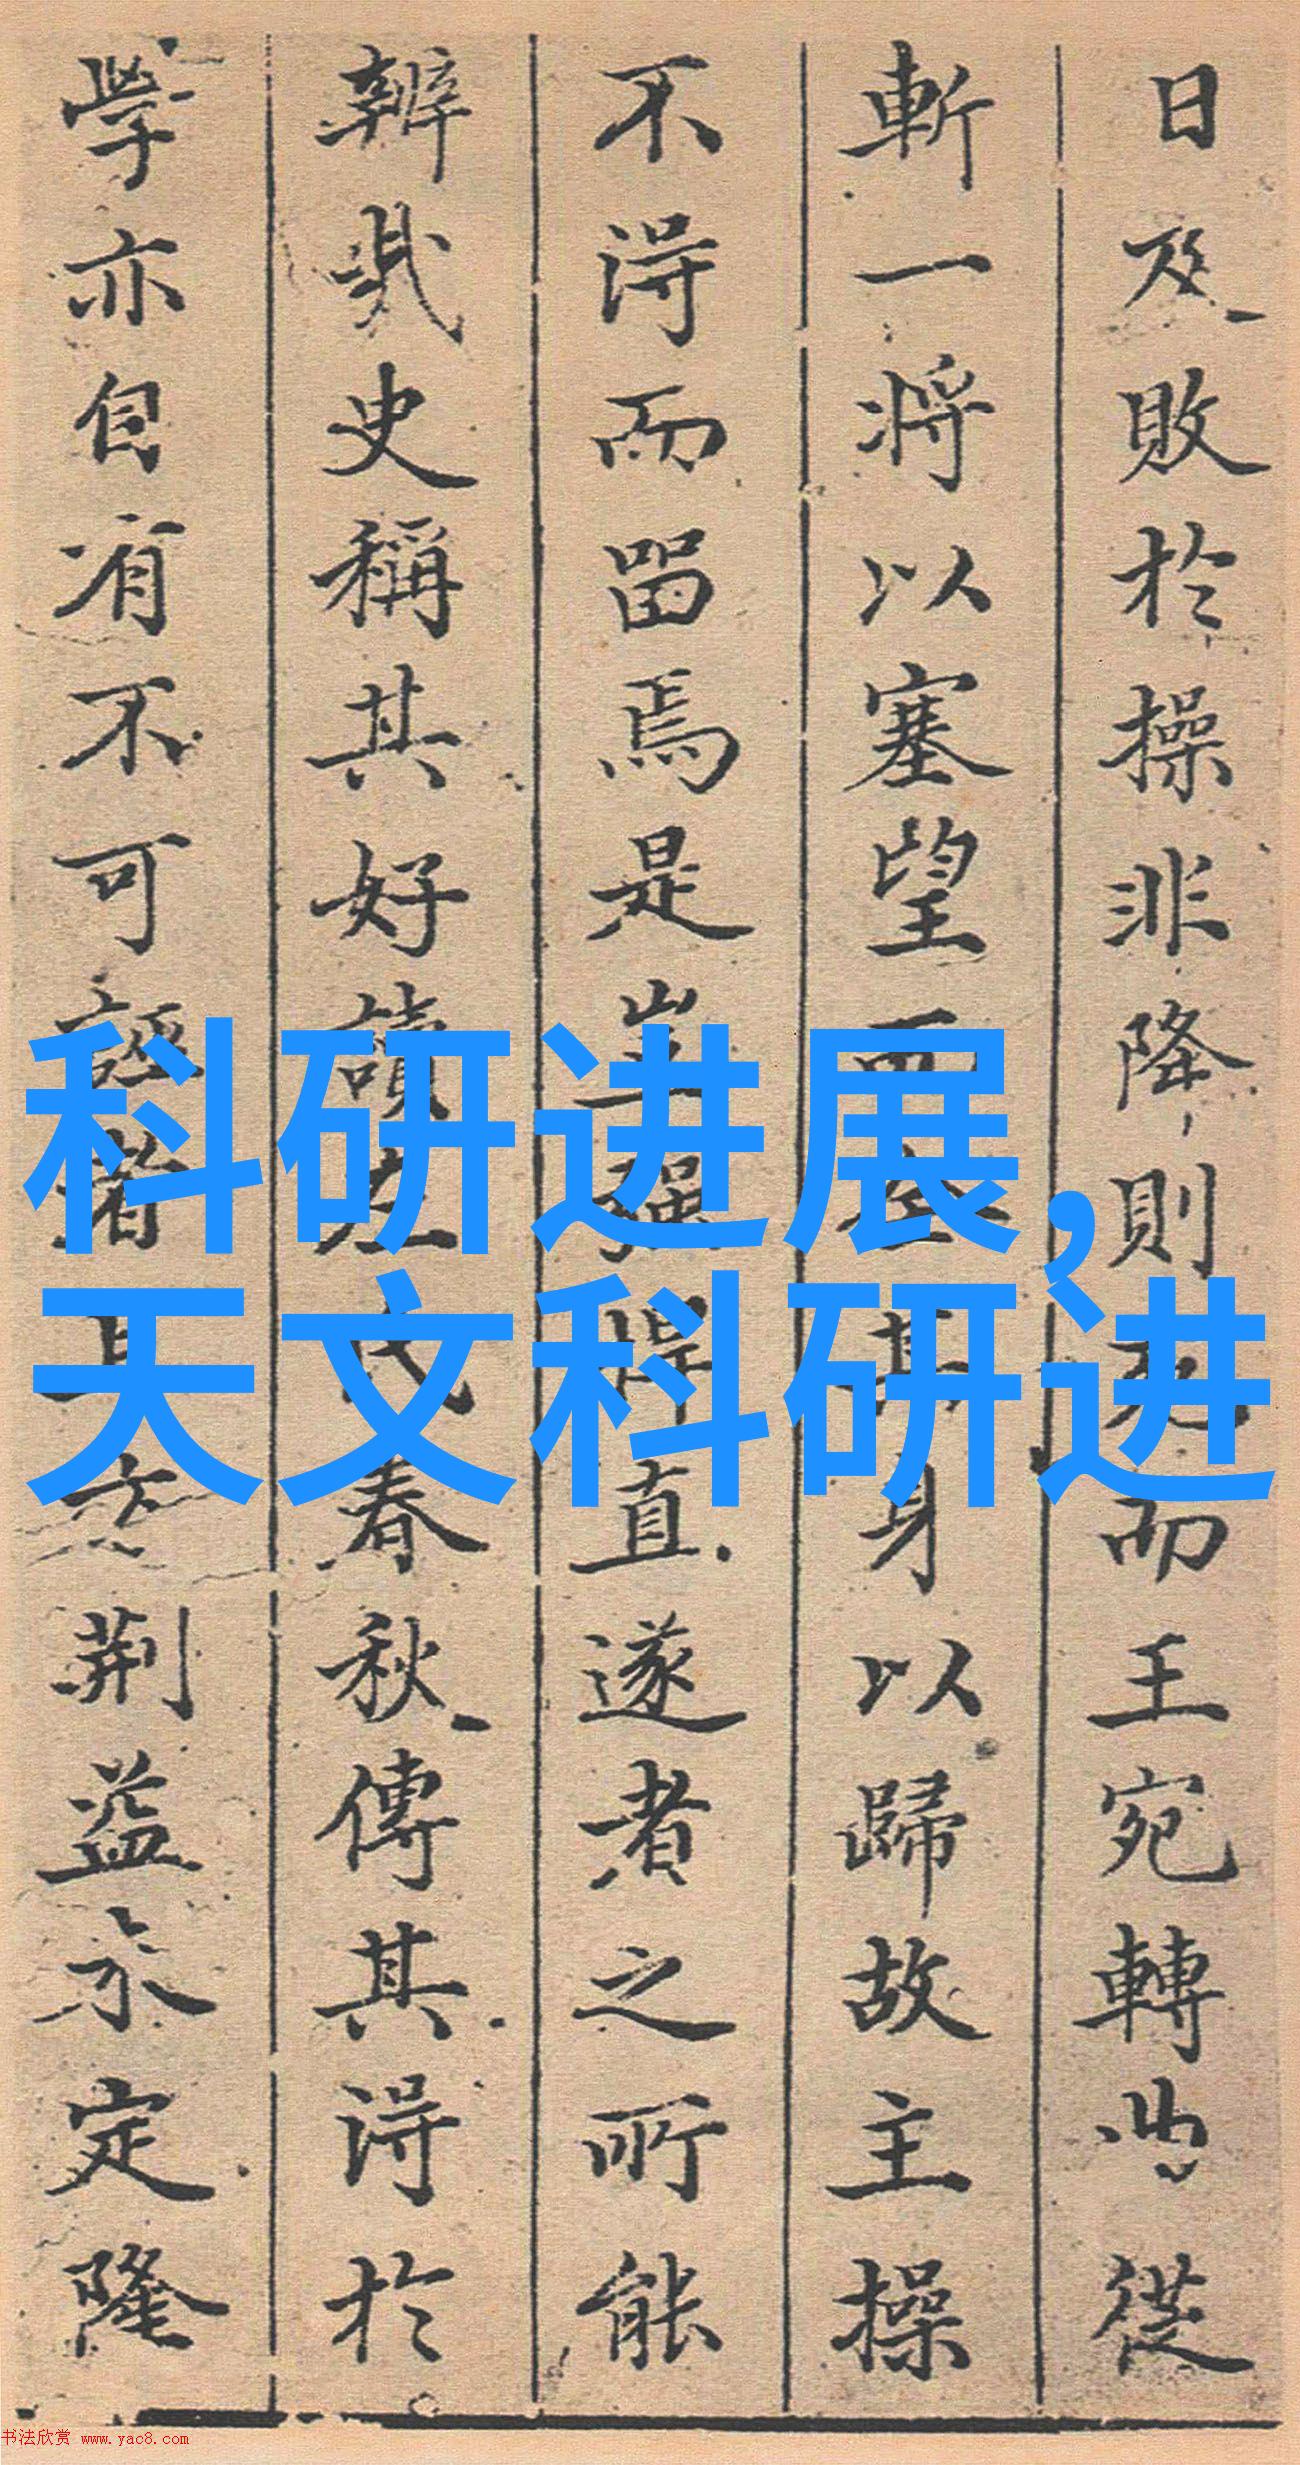 日及敗於操非降則
而王宛轉
從
斬一將以塞望而
身以歸故主操
不得而留焉是豈強悍直遂者之所能
辨哉史稱其好讀左氏春秋傳其得於
學亦自有不可誣者
荆益
定隆
科研进展，
天文科研进
书法欣赏 www.yac8.com